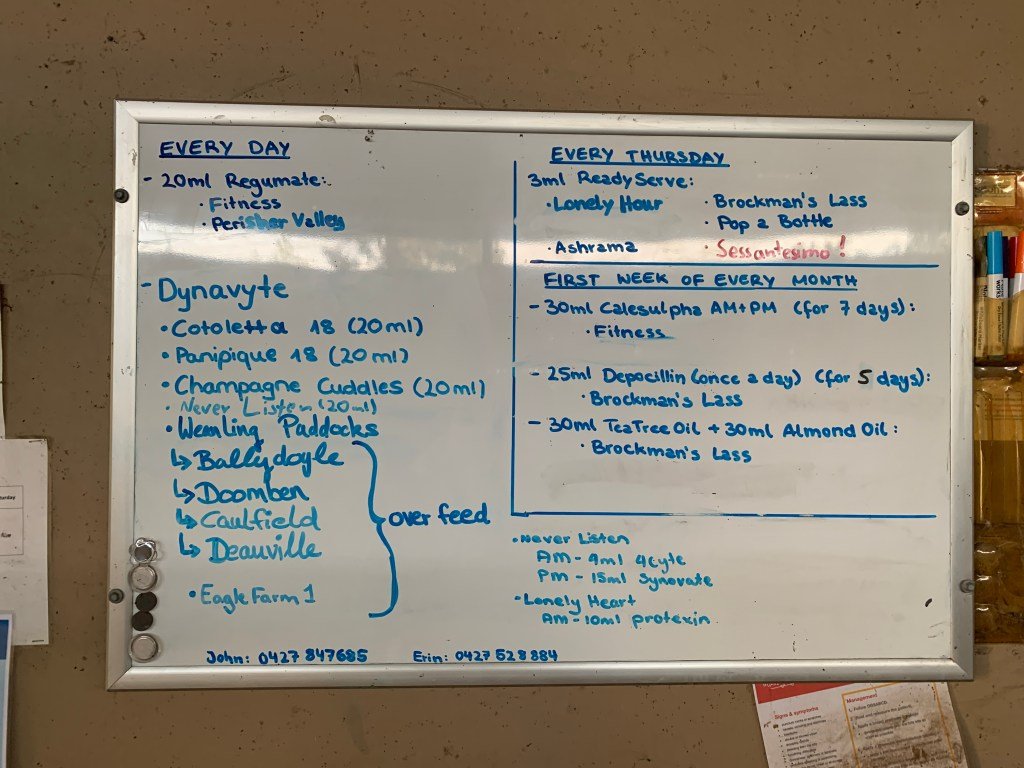 EVERY DAY
- 20ml Regumate:
• Fitness
• Perisher Valley
- Dynavyte
• Cotoletta 18 (20ml)
• Panipique 18 (20ml)
• Champagne Cuddles (20ml)
• Never Listen (20ml)
• Weanling Paddocks
↳ Ballydoyle
↳ Doomben
↳ Caulfield
↳ Deauville
• Eagle Farm 1
over feed
EVERY THURSDAY
3ml ReadyServe:
• Lonely Hour • Brockman's Lass
• Pop a Bottle
• Ashrama • Sessantesimo!
FIRST WEEK OF EVERY MONTH
- 30ml Calesulpha AM+PM (for 7 days):
• Fitness
- 25ml Depocillin (once a day) (for 5 days):
• Brockman's Lass
- 30ml Tea Tree Oil + 30ml Almond Oil:
• Brockman's Lass
• Never Listen
AM - 9ml 4cyte
PM - 15ml Synovate
• Lonely Heart
AM - 10ml protexin
John: 0427 847685 Erin: 0427 528 884
Signs & symptoms
Management